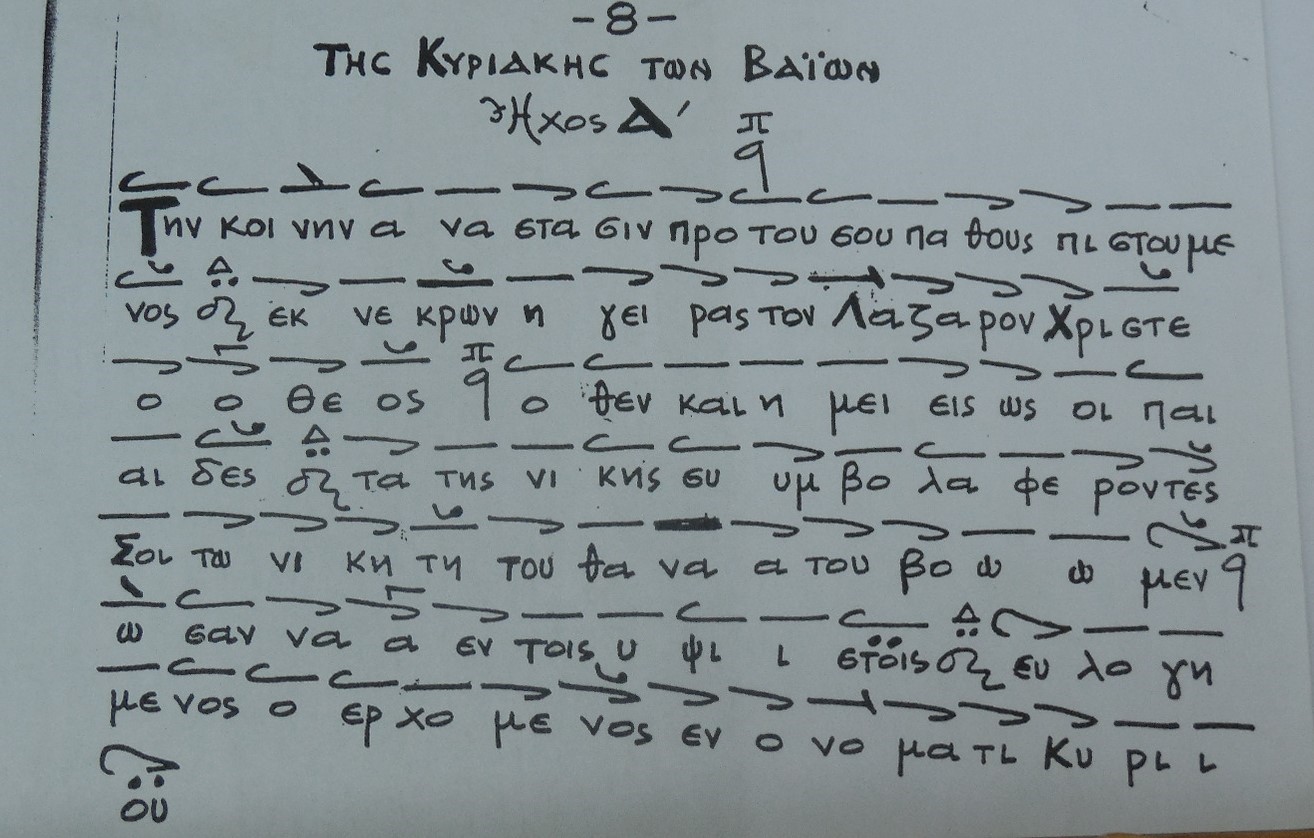 -8-
Της Κυριακης των Βαϊων
Ἦχος Δ′ π q
Την κοι νην α να στα σιν προ του σου πα θους πι στου με
νος Δ εκ νε κρων η γει ρας τον Λα ζα ρον Χρι στε
ο ο Θε ος π q ο θεν και η μει εις ως οι παι
αι δες Δ τα της νι κης συ υμ βο λα φε ροντες
Σοι τω νι κη τη του θα να α του βο ω ω μεν π q
ω σαν να α εν τοις υ ψι ι στοις Δ ευ λο γη
με νος ο ερ χο με νος εν ο νο μα τι Κυ ρι ι
ου